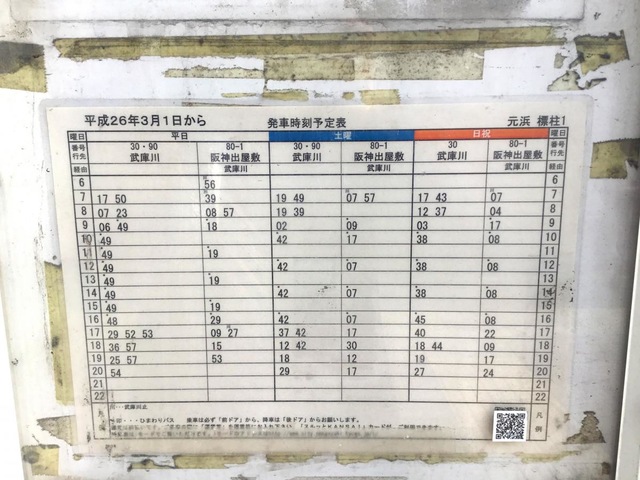 平成26年3月1日から 発車時刻予定表 元浜 標柱1
曜日 平日 土曜 日祝 曜日
番号 30・90 80-1 30・90 80-1 30 80-1 番号
行先 武庫川 阪神出屋敷 武庫川 阪神出屋敷 武庫川 阪神出屋敷 行先
経由 武庫川 武庫川 武庫川 経由
6 56 6
7 17 50 39 19 49 07 57 17 43 07 7
8 07 23 08 57 19 39 12 37 04 8
9 06 49 18 02 09 03 17 9
10 49 42 17 38 08 10
11 49 19 11
12 49 42 07 38 08 12
13 49 19 13
14 49 42 07 38 08 14
15 49 19 15
16 48 29 42 07 45 08 16
17 29 52 53 09 27 37 42 17 40 22 17
18 36 57 15 12 42 30 18 44 09 18
19 25 57 53 18 12 19 17 19
20 54 29 17 27 24 20
21 21
22 22
武庫川止
ひまわりバス 乗車は必ず「前ドア」から、降車は「後ドア」からお願いします。
凡例